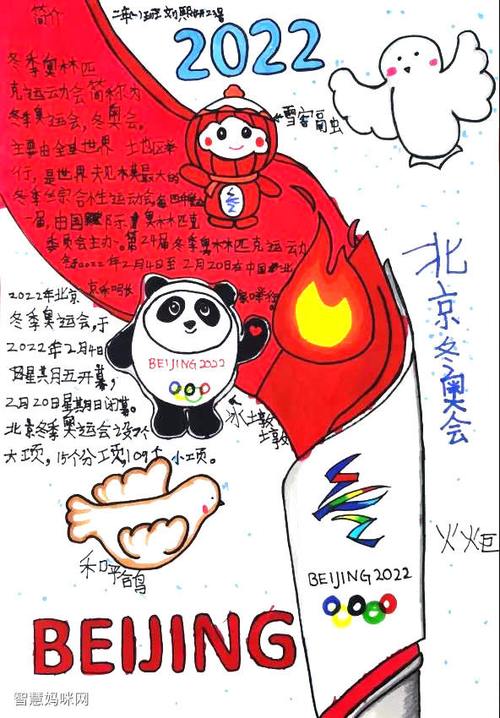 简介
2022
冬季奥林匹
克运动会简称为
冬季奥运会，冬奥会。
主要由全世界 土也区举
行，是世界
冬季综合性运动会
一届，由国际奥林匹克
委员会主办。第24届冬季奥林匹克运动
会2022年2月4日至2月20日在中国
雪容融
2022年北京
冬季奥运会，于
2022年2月4日
星期五开幕，
2月20日星期日闭幕。
北京冬季奥运会设7个
大项，15个分项，109个小项。
BEIJING 2022
冰土敦
土敦
北京冬奥会
和平鸽
火火巨
BEIJING2022
BEIJING
智慧妈咪网